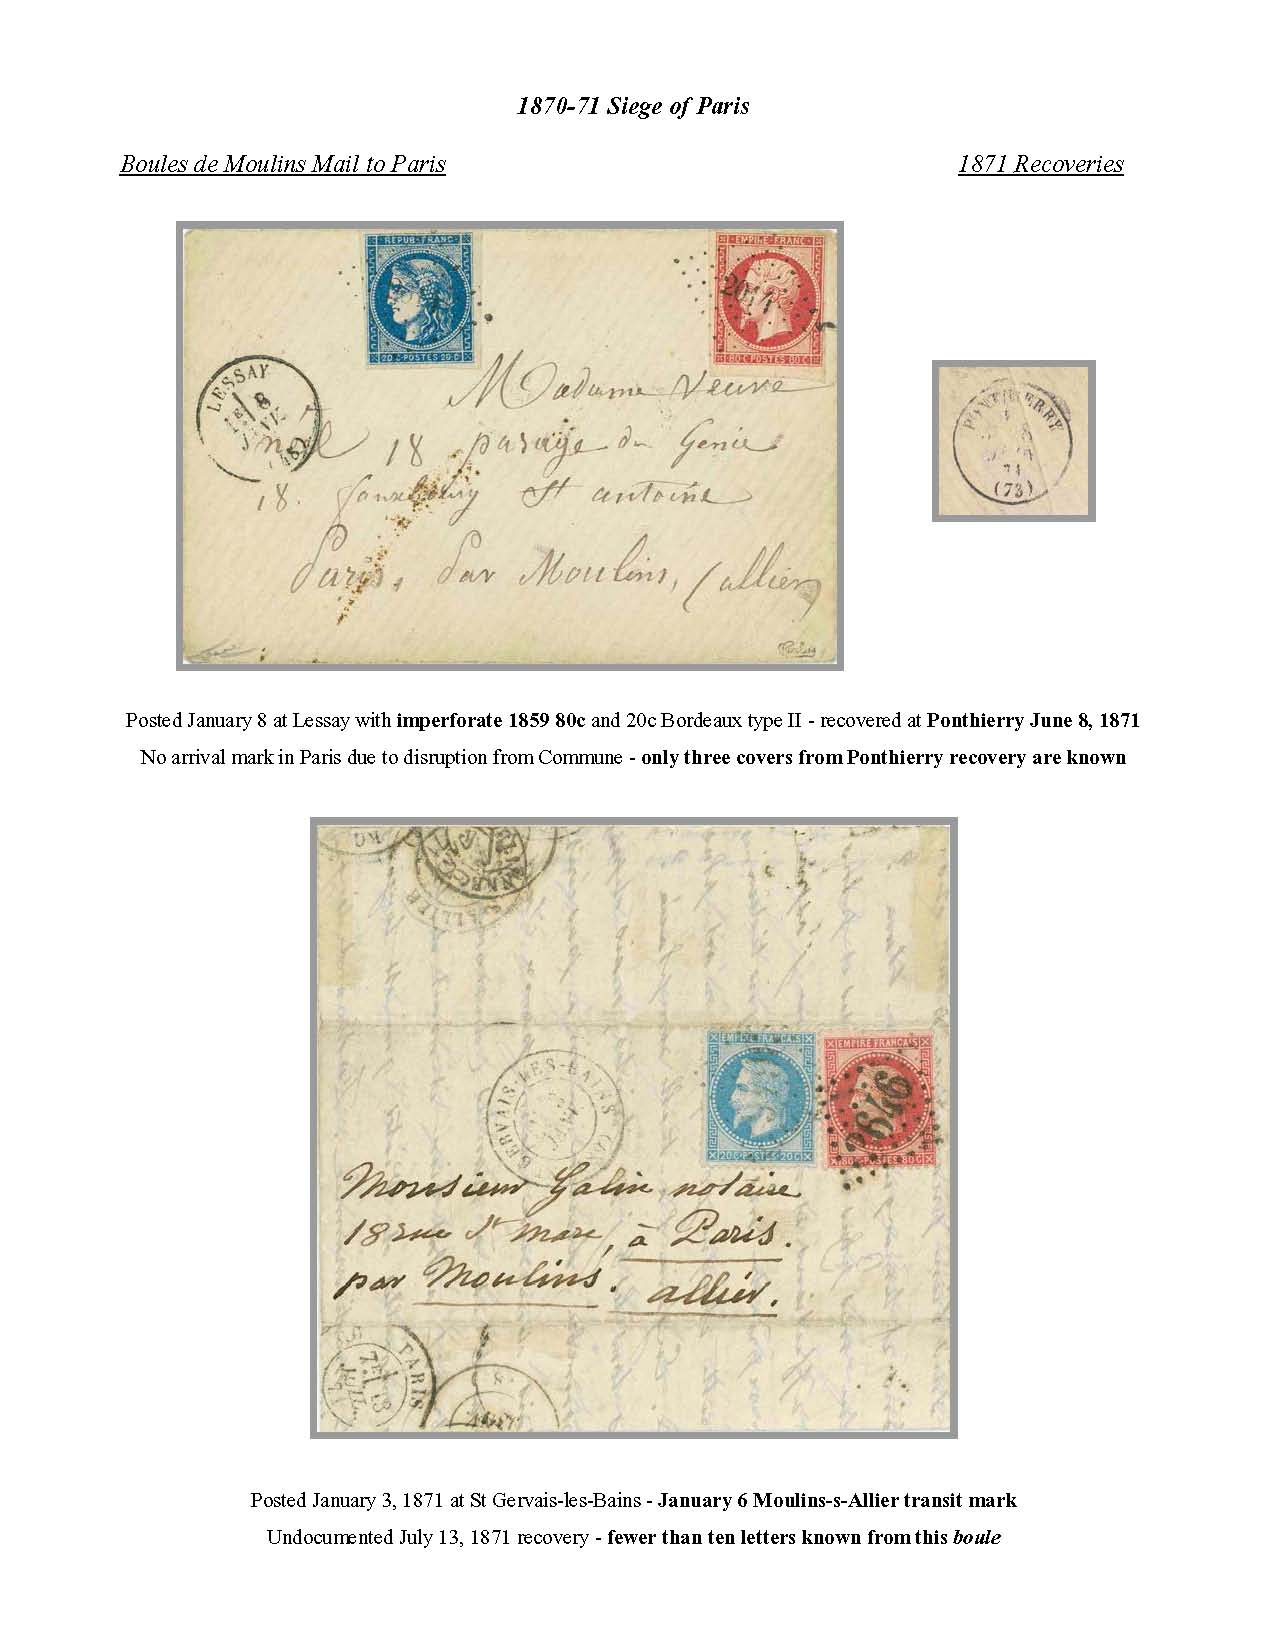 1870-71 Siege of Paris
Boules de Moulins Mail to Paris
1871 Recoveries
REPUB·FRANC·
20·C·POSTES·20·C·
EMPIRE·FRANC·
2014
80·C·POSTES·80·C·
LESSAY
1E
8
JANV.
Madame Veuve
18 passage du Genie
18. fauxbourg St antoine
Paris, par Moulins, (allier)
PONTHIERRY
71
(73)
Posted January 8 at Lessay with imperforate 1859 80c and 20c Bordeaux type II - recovered at Ponthierry June 8, 1871
No arrival mark in Paris due to disruption from Commune - only three covers from Ponthierry recovery are known
S-ALLIER
EMPIRE FRANCAIS
20C POSTES 20C
EMPIRE FRANÇAIS
2646
80C POSTES 80C
GERVAIS-LES-BAINS
JANV.
Monsieur Galin notaire
18 rue St Marc, à Paris.
par Moulins. allier.
PARIS
7E
13
JUIL.
71
Posted January 3, 1871 at St Gervais-les-Bains - January 6 Moulins-s-Allier transit mark
Undocumented July 13, 1871 recovery - fewer than ten letters known from this boule